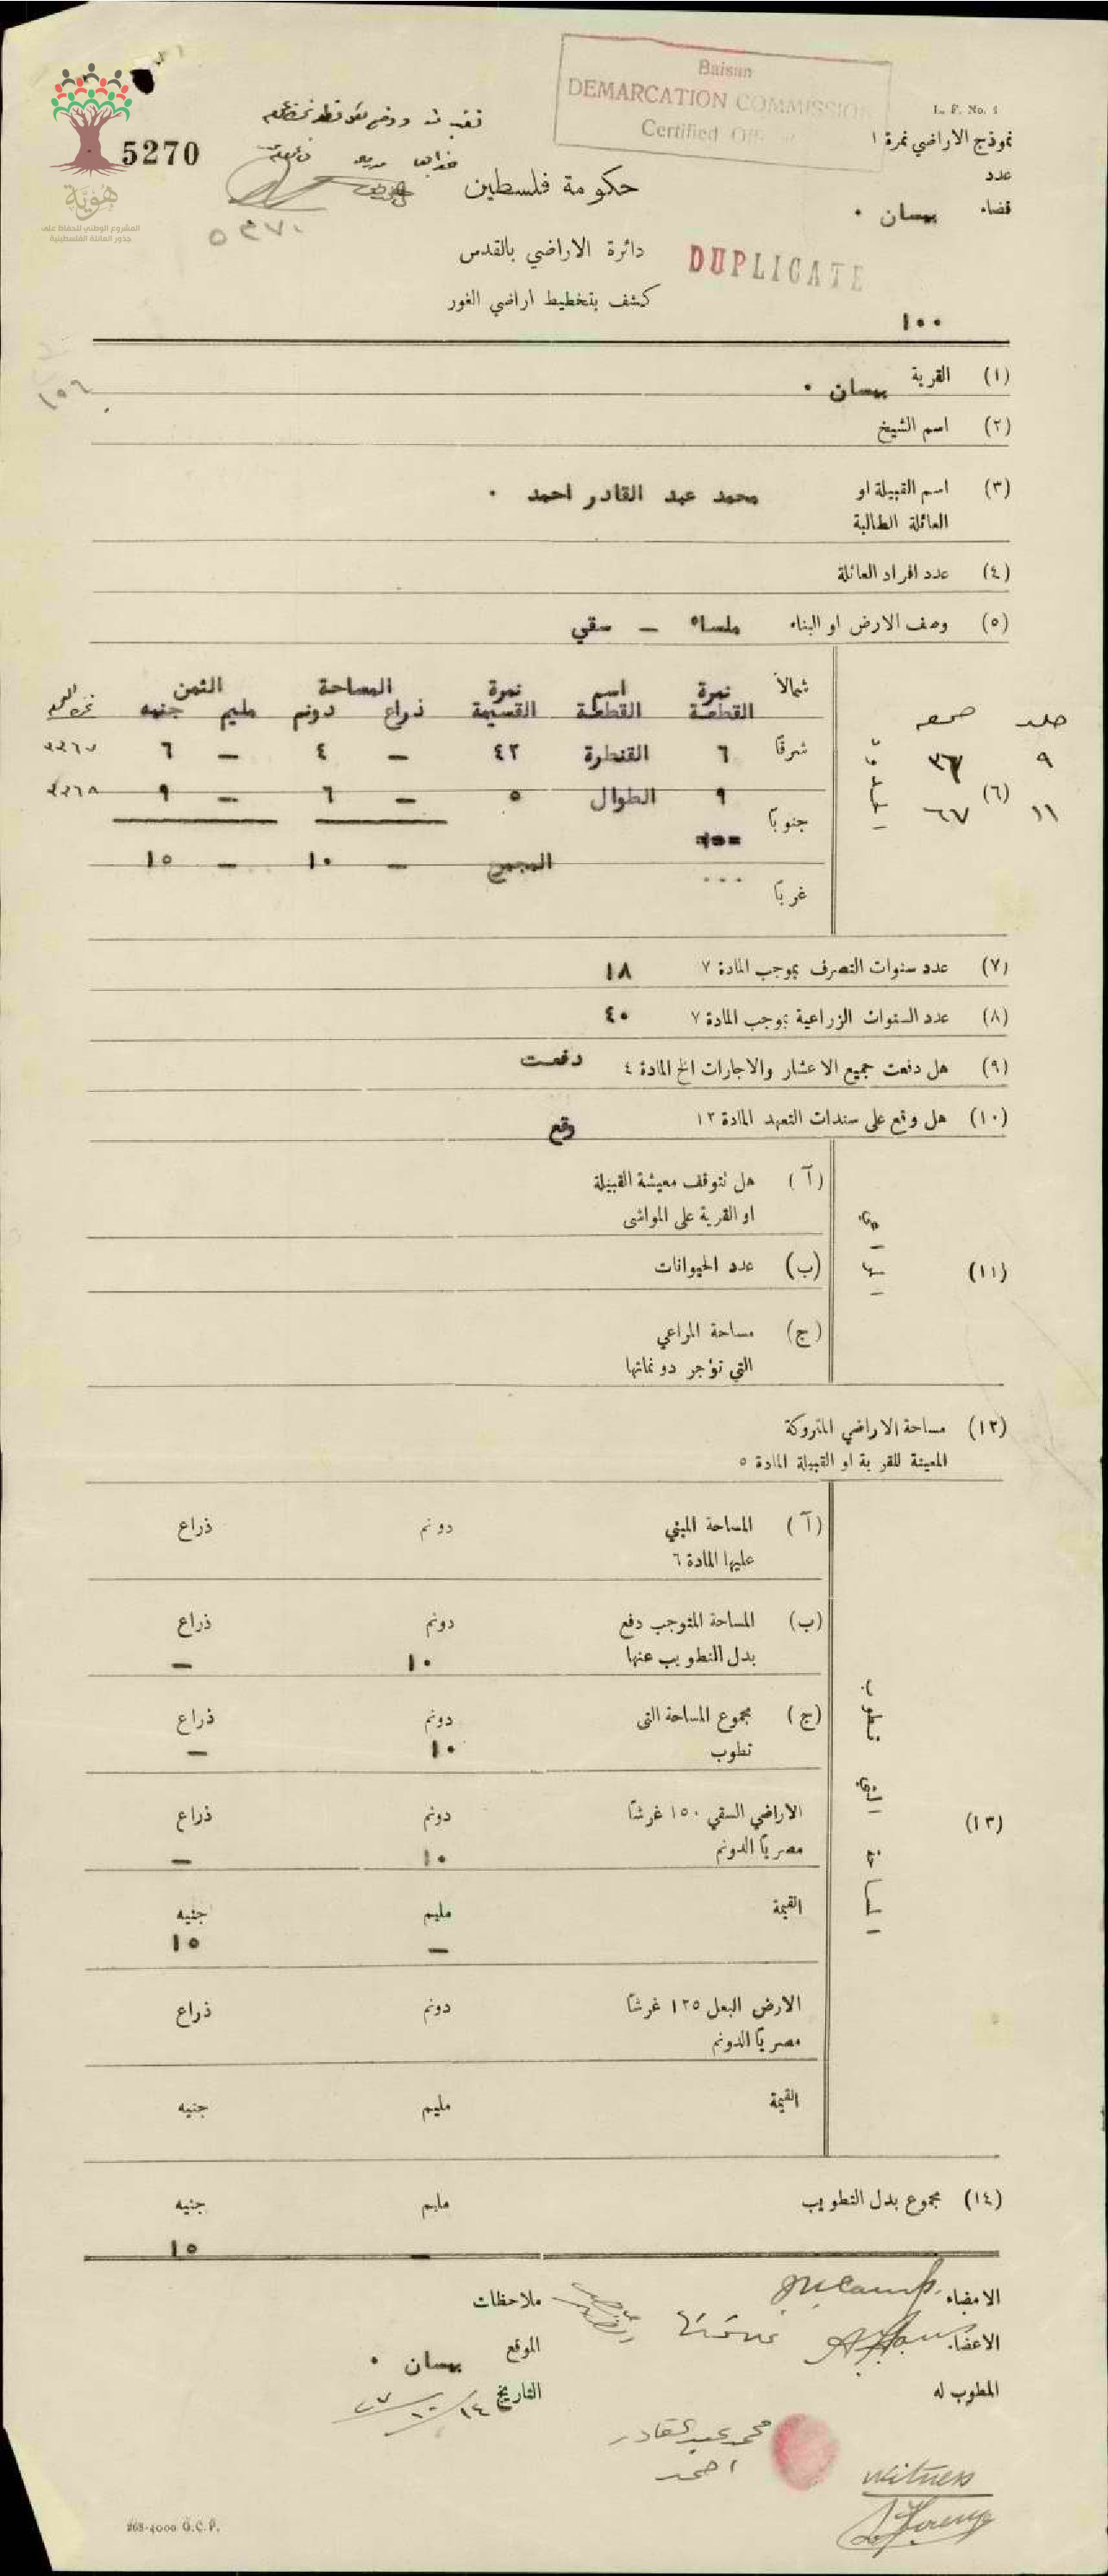 Baisan
DEMARCATION COMMISSION
Certified
L. F. No. 1
نموذج الاراضي نمرة ١
عدد
قضاء بيسان ٠
5270
هوية
المشروع الوطني للحفاظ على
جذور العائلة الفلسطينية
٥٢٧٠
حكومة فلسطين
دائرة الاراضي بالقدس
DUPLICATE
كشف بتخطيط اراضي الغور
١٠٠
١٥٦
(١) القرية بيسان ٠
(٢) اسم الشيخ
(٣) اسم القبيلة او محمد عبد القادر احمد ٠
العائلة الطالبة
(٤) عدد افراد العائلة
(٥) وصف الارض او البناء ملساء – سقي
شمالاً نمرة اسم نمرة المساحة الثمن
القطعة القطعة القسيمة ذراع دونم مليم جنيه
جلد صحيفة
شرقاً ٦ القنطرة ٤٢ – ٤ – ٦
٩ ٣٧
(٦) الحدود
٩ الطوال ٥ – ٦ – ٩
١١ ٦٧
جنوباً
المجموع – ١٠ – ١٥
غرباً
(٧) عدد سنوات التصرف بموجب المادة ٧ ١٨
(٨) عدد السنوات الزراعية بموجب المادة ٧ ٤٠
(٩) هل دفعت جميع الاعشار والاجارات الخ المادة ٤ دفعت
(١٠) هل وقع على سندات التعهد المادة ١٣ وقع
(١١) المراعي
(آ) هل تتوقف معيشة القبيلة
او القرية على المواشى
(ب) عدد الحيوانات
(ج) مساحة المراعي
التي تؤجر دونماتها
(١٢) مساحة الاراضي المتروكة
المعينة للقرية او القبيلة المادة ٥
(١٣) المساحة التي تطوب
(آ) المساحة المبني دونم ذراع
عليها المادة ٦
(ب) المساحة المتوجب دفع دونم ذراع
بدل التطويب عنها ١٠ –
(ج) مجموع المساحة التى دونم ذراع
تطوب ١٠ –
الاراضي السقي ١٥٠ غرشاً دونم ذراع
مصرياً الدونم ١٠ –
القيمة مليم جنيه
– ١٥
الارض البعل ١٢٥ غرشاً دونم ذراع
مصرياً الدونم
القيمة مليم جنيه
(١٤) مجموع بدل التطويب مليم جنيه
– ١٥
الامضاء
ملاحظات
الاعضاء
الموقع بيسان ٠
المطوب له
التاريخ ١٤/١٠/٢٧
محمد عبد القادر
احمد
witness
268-4000 G.C.P.